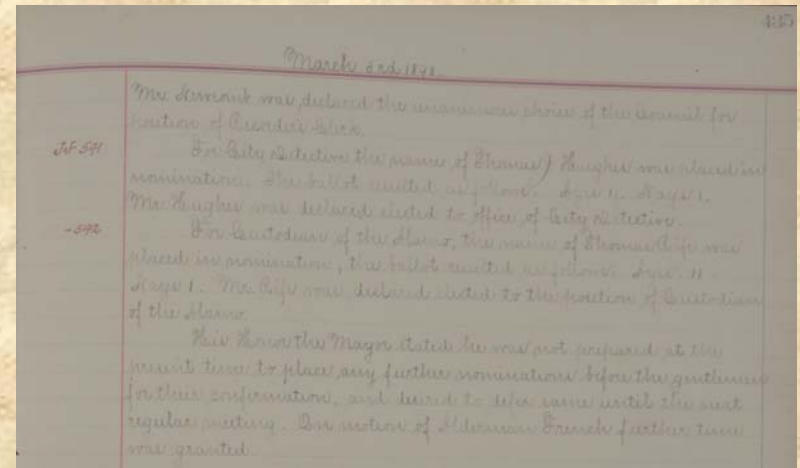 435
March 3rd 189
Mr. was declared the unanimous choice of the Council for
position of Recorder's Clerk.
591
For City Detective the name of Thomas Hughes was placed in
nomination. The ballot resulted as follows. Ayes 11. Nays 1.
Mr. Hughes was declared elected to office of City Detective.
-592
For Custodian of the Alamo, the name of Thomas Rife was
placed in nomination, the ballot resulted as follows. Ayes. 11
Nays 1. Mr. Rife was declared elected to the position of Custodian
of the Alamo.
His Honor the Mayor stated he was not prepared at the
present time to place any further nominations before the gentlemen
for their confirmation, and desired to defer same until the next
regular meeting. On motion of Alderman French further time
was granted.